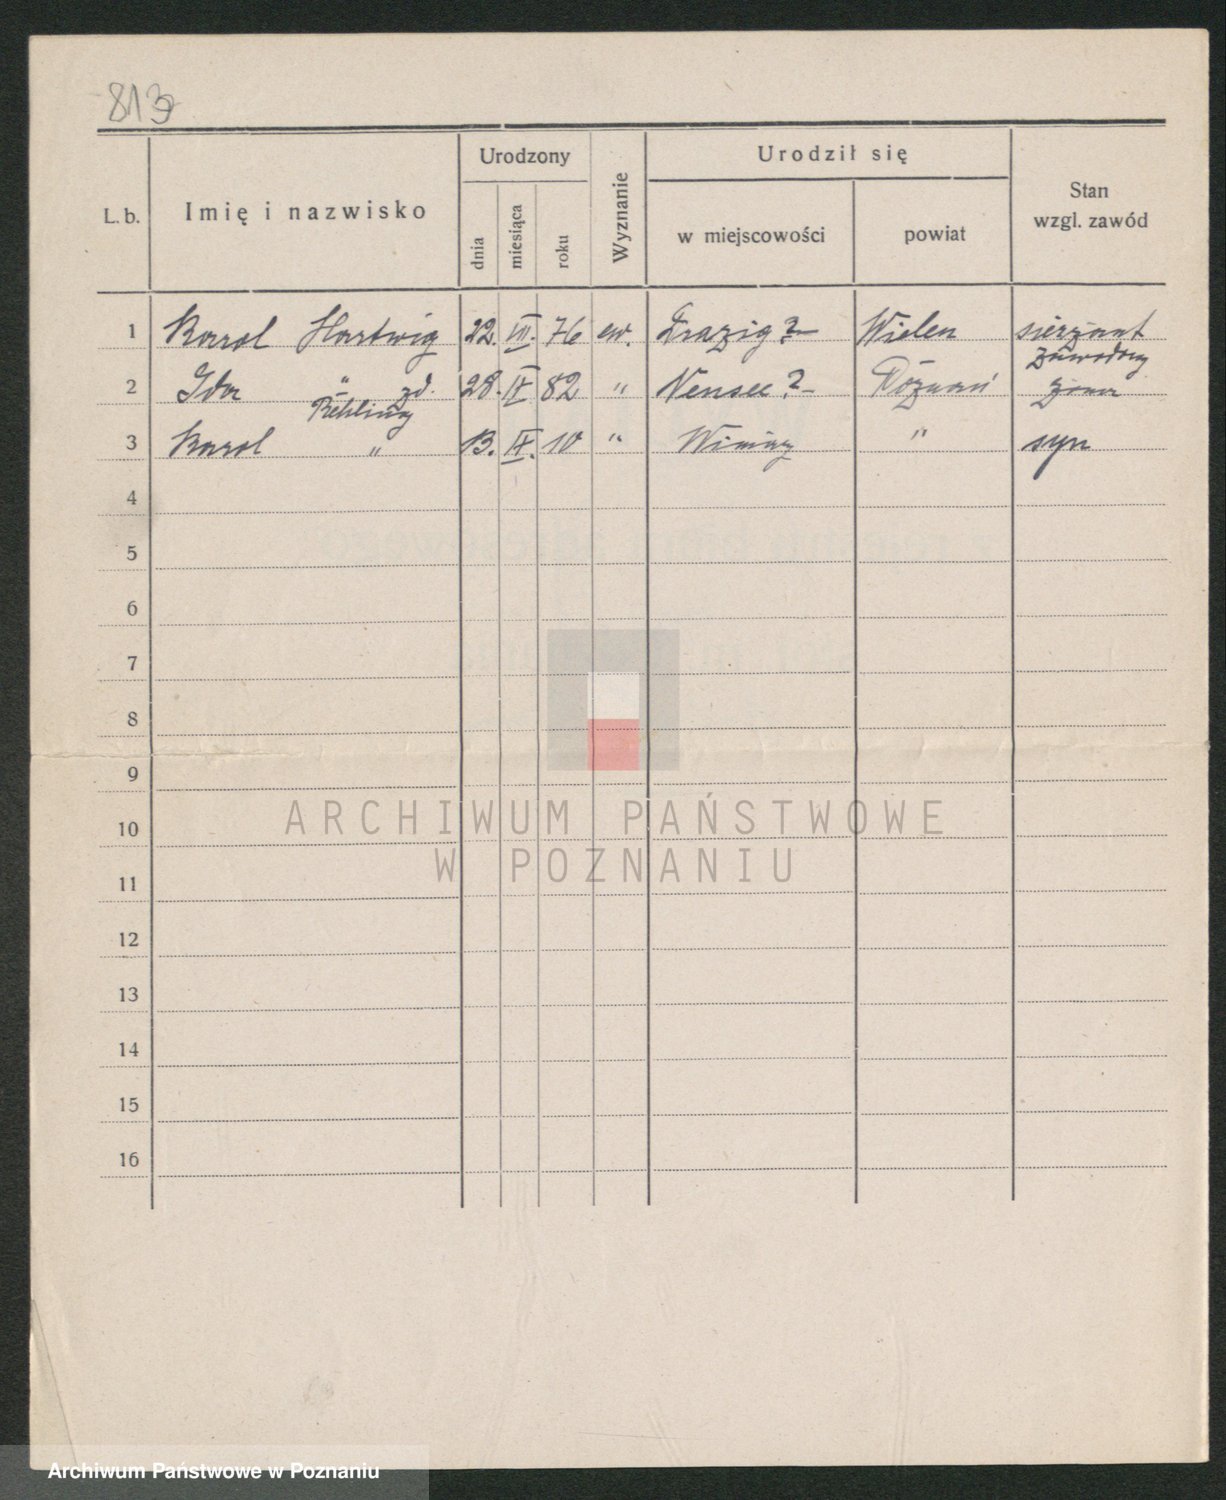 813
Urodzony
Urodził się
L. b.
Imię i nazwisko
dnia
miesiąca
roku
Wyznanie
w miejscowości
powiat
Stan
wzgl. zawód
1 Karol Hartwig 22. 76 ew. ?- Wielen sierżant
zawodowy
2 Ida " zd. 28. 82 " ?- Poznań żona
3 Karol " 13. IX. 10 " Winiary " syn
4
5
6
7
8
9
10
11
12
13
14
15
16
ARCHIWUM PAŃSTWOWE
W POZNANIU
Archiwum Państwowe w Poznaniu